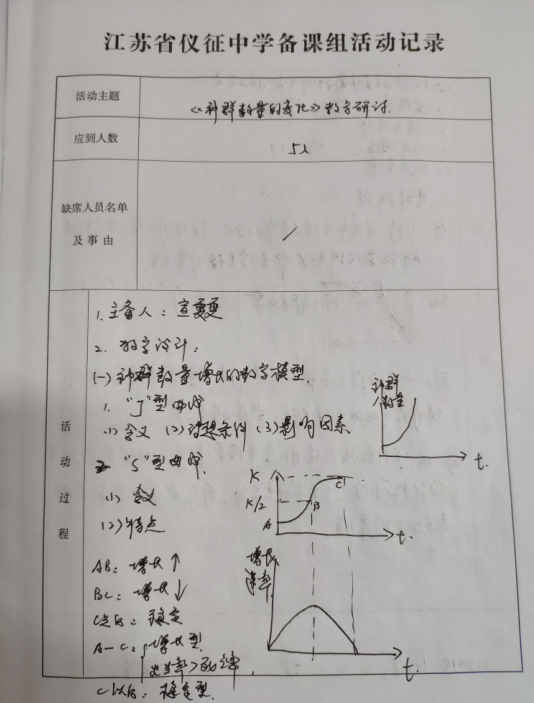 江苏省仪征中学备课组活动记录
活动主题
《种群数量的变化》教学研讨.
应到人数
5人
缺席人员名单
及事由
/
活动过程
1. 主备人：宣雯雯
2. 教学设计：
(一) 种群数量增长的数学模型.
1. "J"型曲线
(1) 含义 (2) 理想条件 (3) 影响因素
种群
数量
t.
2 "S"型曲线.
(1) 含义
(2) 特点
K
K/2
A
B
C
t.
AB：增长↑
BC：增长↓
C点后：稳定
A-C：增长型
出生率>死亡率.
C以后：稳定型.
增长
速率
t.